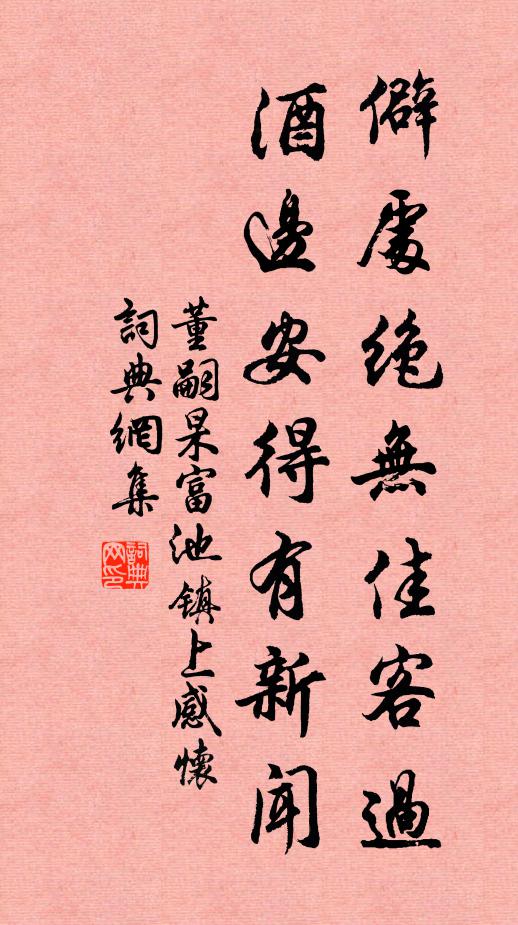 僻處絶無佳客過
酒邊安得有新聞
董嗣杲富池鎮上感懷
詞典網集
詞典网印